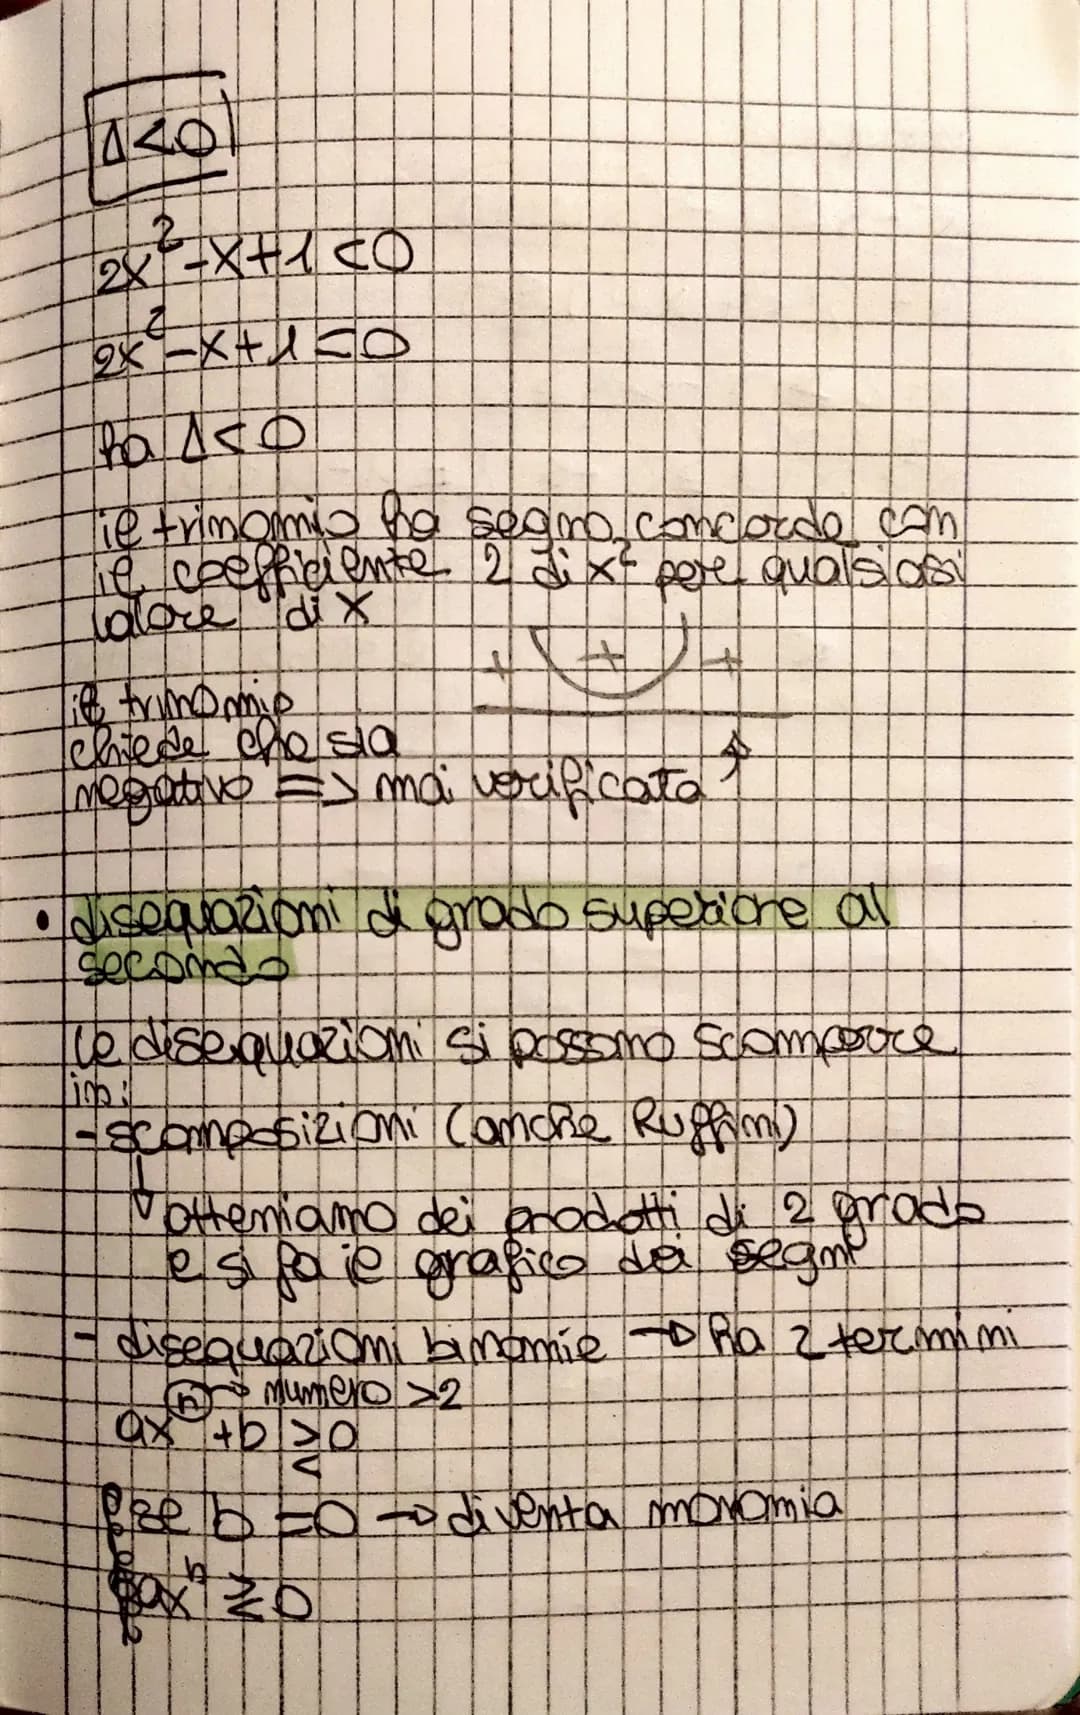 Δ<0
2x²-x+1<0
2x²-x+1=0
ha Δ<0
il trinomio ha segno concorde con
il coefficiente 2 di x² per qualsiasi
valore di x
+ + +
il trinomio
chiede che sia
negativo => mai verificata
• disequazioni di grado superiore al
secondo
le disequazioni si possono scomporre
in:
- scomposizioni (anche Ruffini)
↓ otteniamo dei prodotti di 2 grado
e si fa il grafico dei segni
- disequazioni binomie → ha 2 termini
n → numero >2
axⁿ + b ≷ 0
se b = 0 → diventa monomia
axⁿ ≷ 0